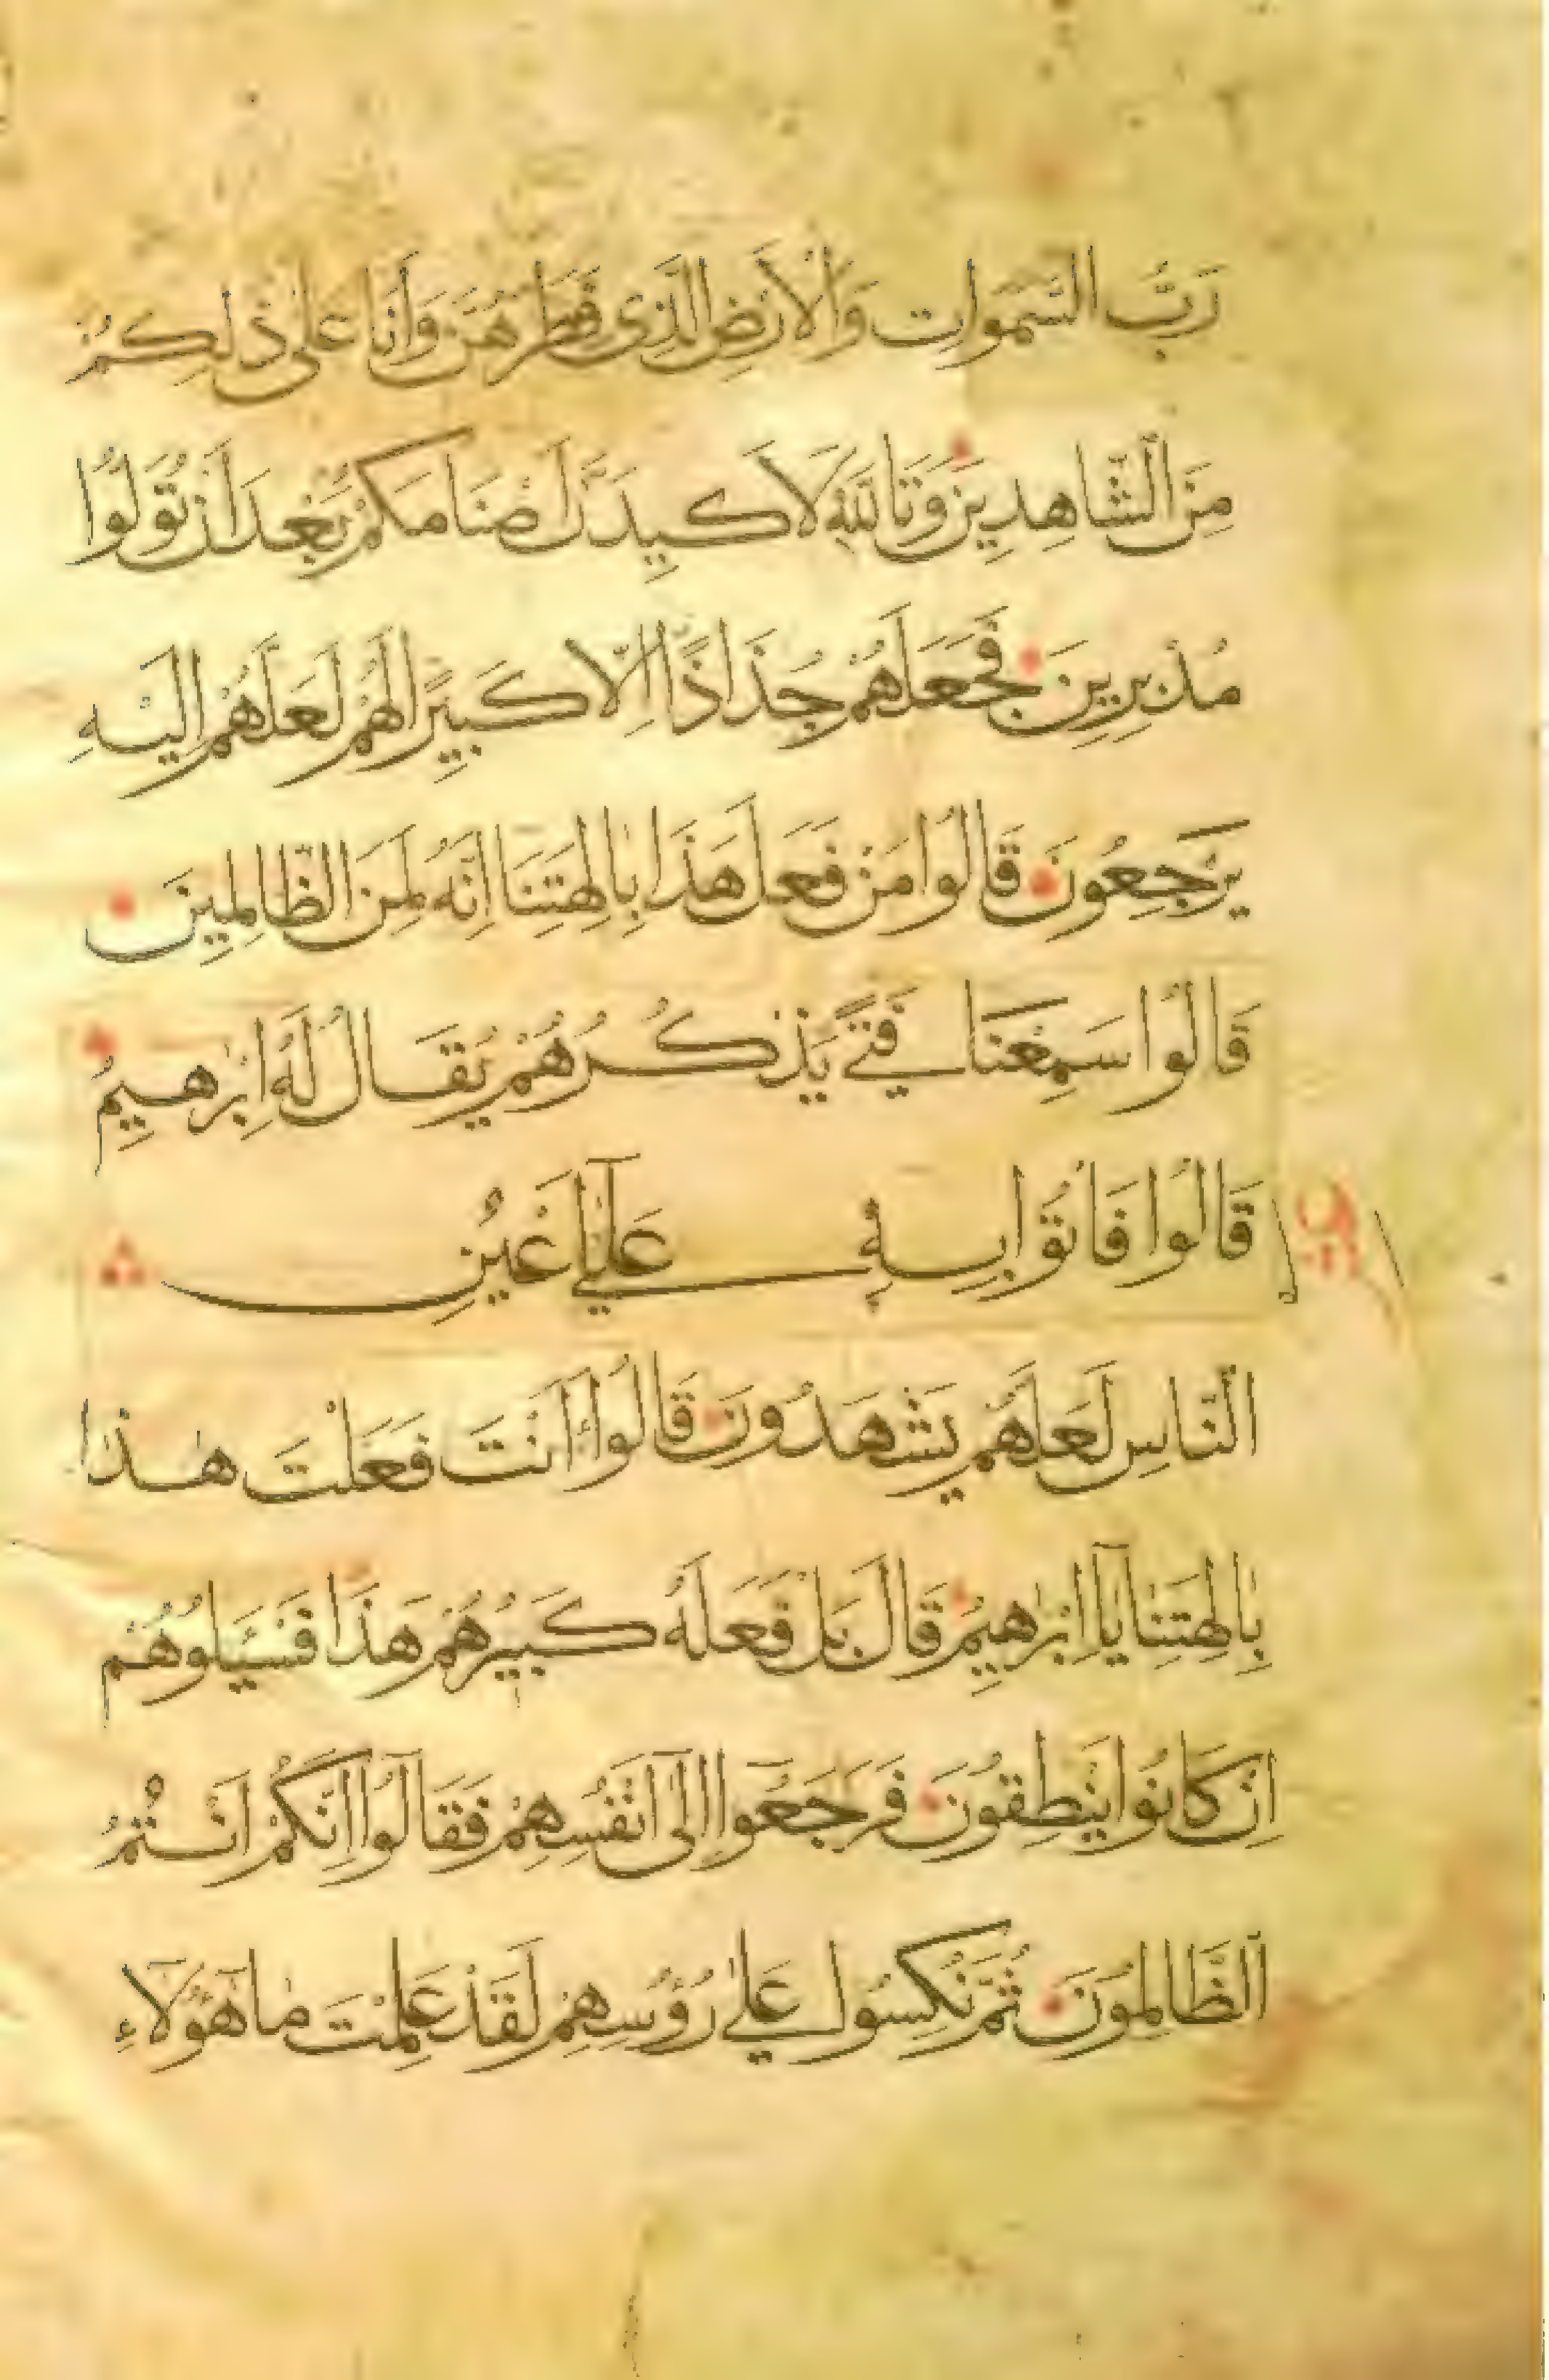 رَبُّ السَّمَوَاتِ وَالْاَرْضِ الَّذِى فَطَرَهُنَّ وَاَنَا عَلٰى ذٰلِكُمْ
مِنَ الشَّاهِدِينَ وَتَاللّٰهِ لَاَكِيدَنَّ اَصْنَامَكُمْ بَعْدَ اَنْ تُوَلُّوا
مُدْبِرِينَ فَجَعَلَهُمْ جُذَاذًا اِلَّا كَبِيرًا لَهُمْ لَعَلَّهُمْ اِلَيْهِ
يَرْجِعُونَ قَالُوا مَنْ فَعَلَ هَذَا بِاٰلِهَتِنَا اِنَّهُ لَمِنَ الظَّالِمِينَ
قَالُوا سَمِعْنَا فَتًى يَذْكُرُهُمْ يُقَالُ لَهُ اِبْرٰهِيمُ
قَالُوا فَأْتُوا بِهِ عَلٰٓى اَعْيُنِ
النَّاسِ لَعَلَّهُمْ يَشْهَدُونَ قَالُوا ءَاَنْتَ فَعَلْتَ هٰذَا
بِاٰلِهَتِنَا يَٓا اِبْرٰهِيمُ قَالَ بَلْ فَعَلَهُ كَبِيرُهُمْ هَذَا فَسْـَٔلُوهُمْ
اِنْ كَانُوا يَنْطِقُونَ فَرَجَعُوا اِلٰٓى اَنْفُسِهِمْ فَقَالُٓوا اِنَّكُمْ اَنْتُمُ
الظَّالِمُونَ ثُمَّ نُكِسُوا عَلٰى رُؤُسِهِمْ لَقَدْ عَلِمْتَ مَا هٰٓؤُلَٓاءِ